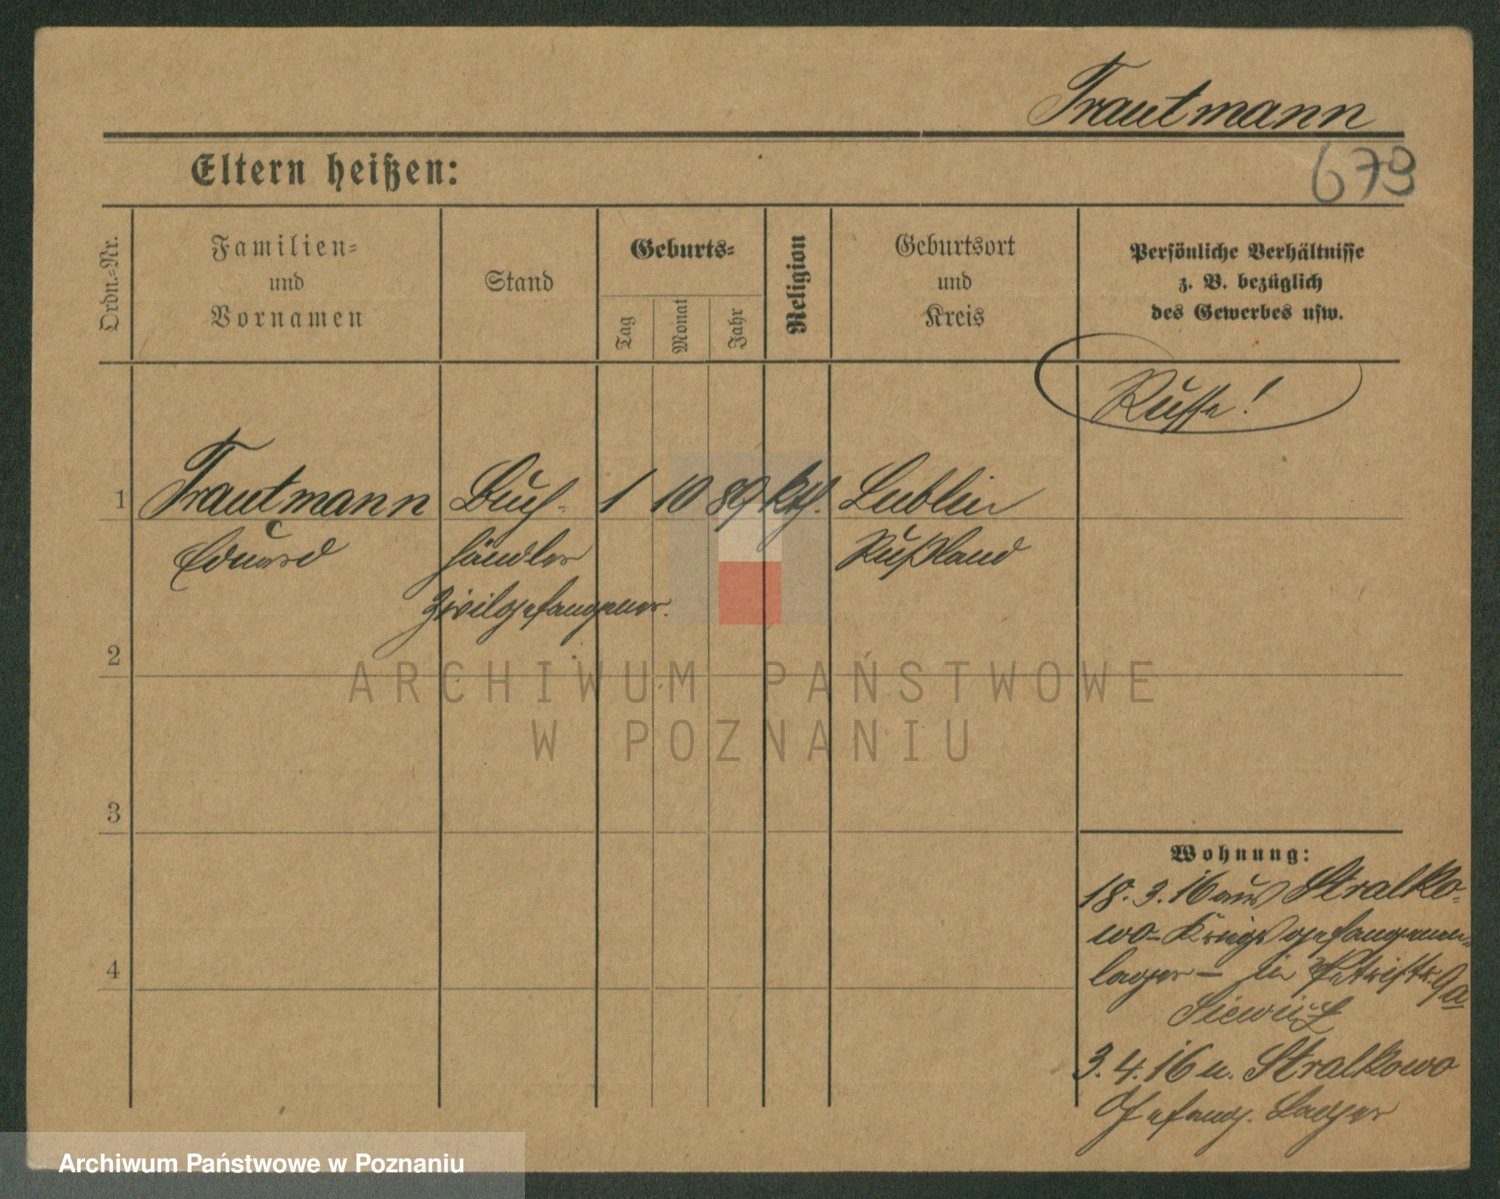 Trautmann
Eltern heißen:
679
Ordn.-Nr.
Familien-
und
Vornamen
Stand
Geburts-
Tag
Monat
Jahr
Religion
Geburtsort
und
Kreis
Persönliche Verhältnisse
z. B. bezüglich
des Gewerbes usw.
Russe!
1 Trautmann Buch- 1 10 89 kth. Lublin
Eduard händler Rußland
Zivilgefangener.
2
3
4
Wohnung:
18.3.16 aus Stralko-
wo- Kriegsgefangenen-
lager - in Petristr. 9a
3.4.16 n. Stralkowo
Gefang. Lager
ARCHIWUM PAŃSTWOWE
W POZNANIU
Archiwum Państwowe w Poznaniu